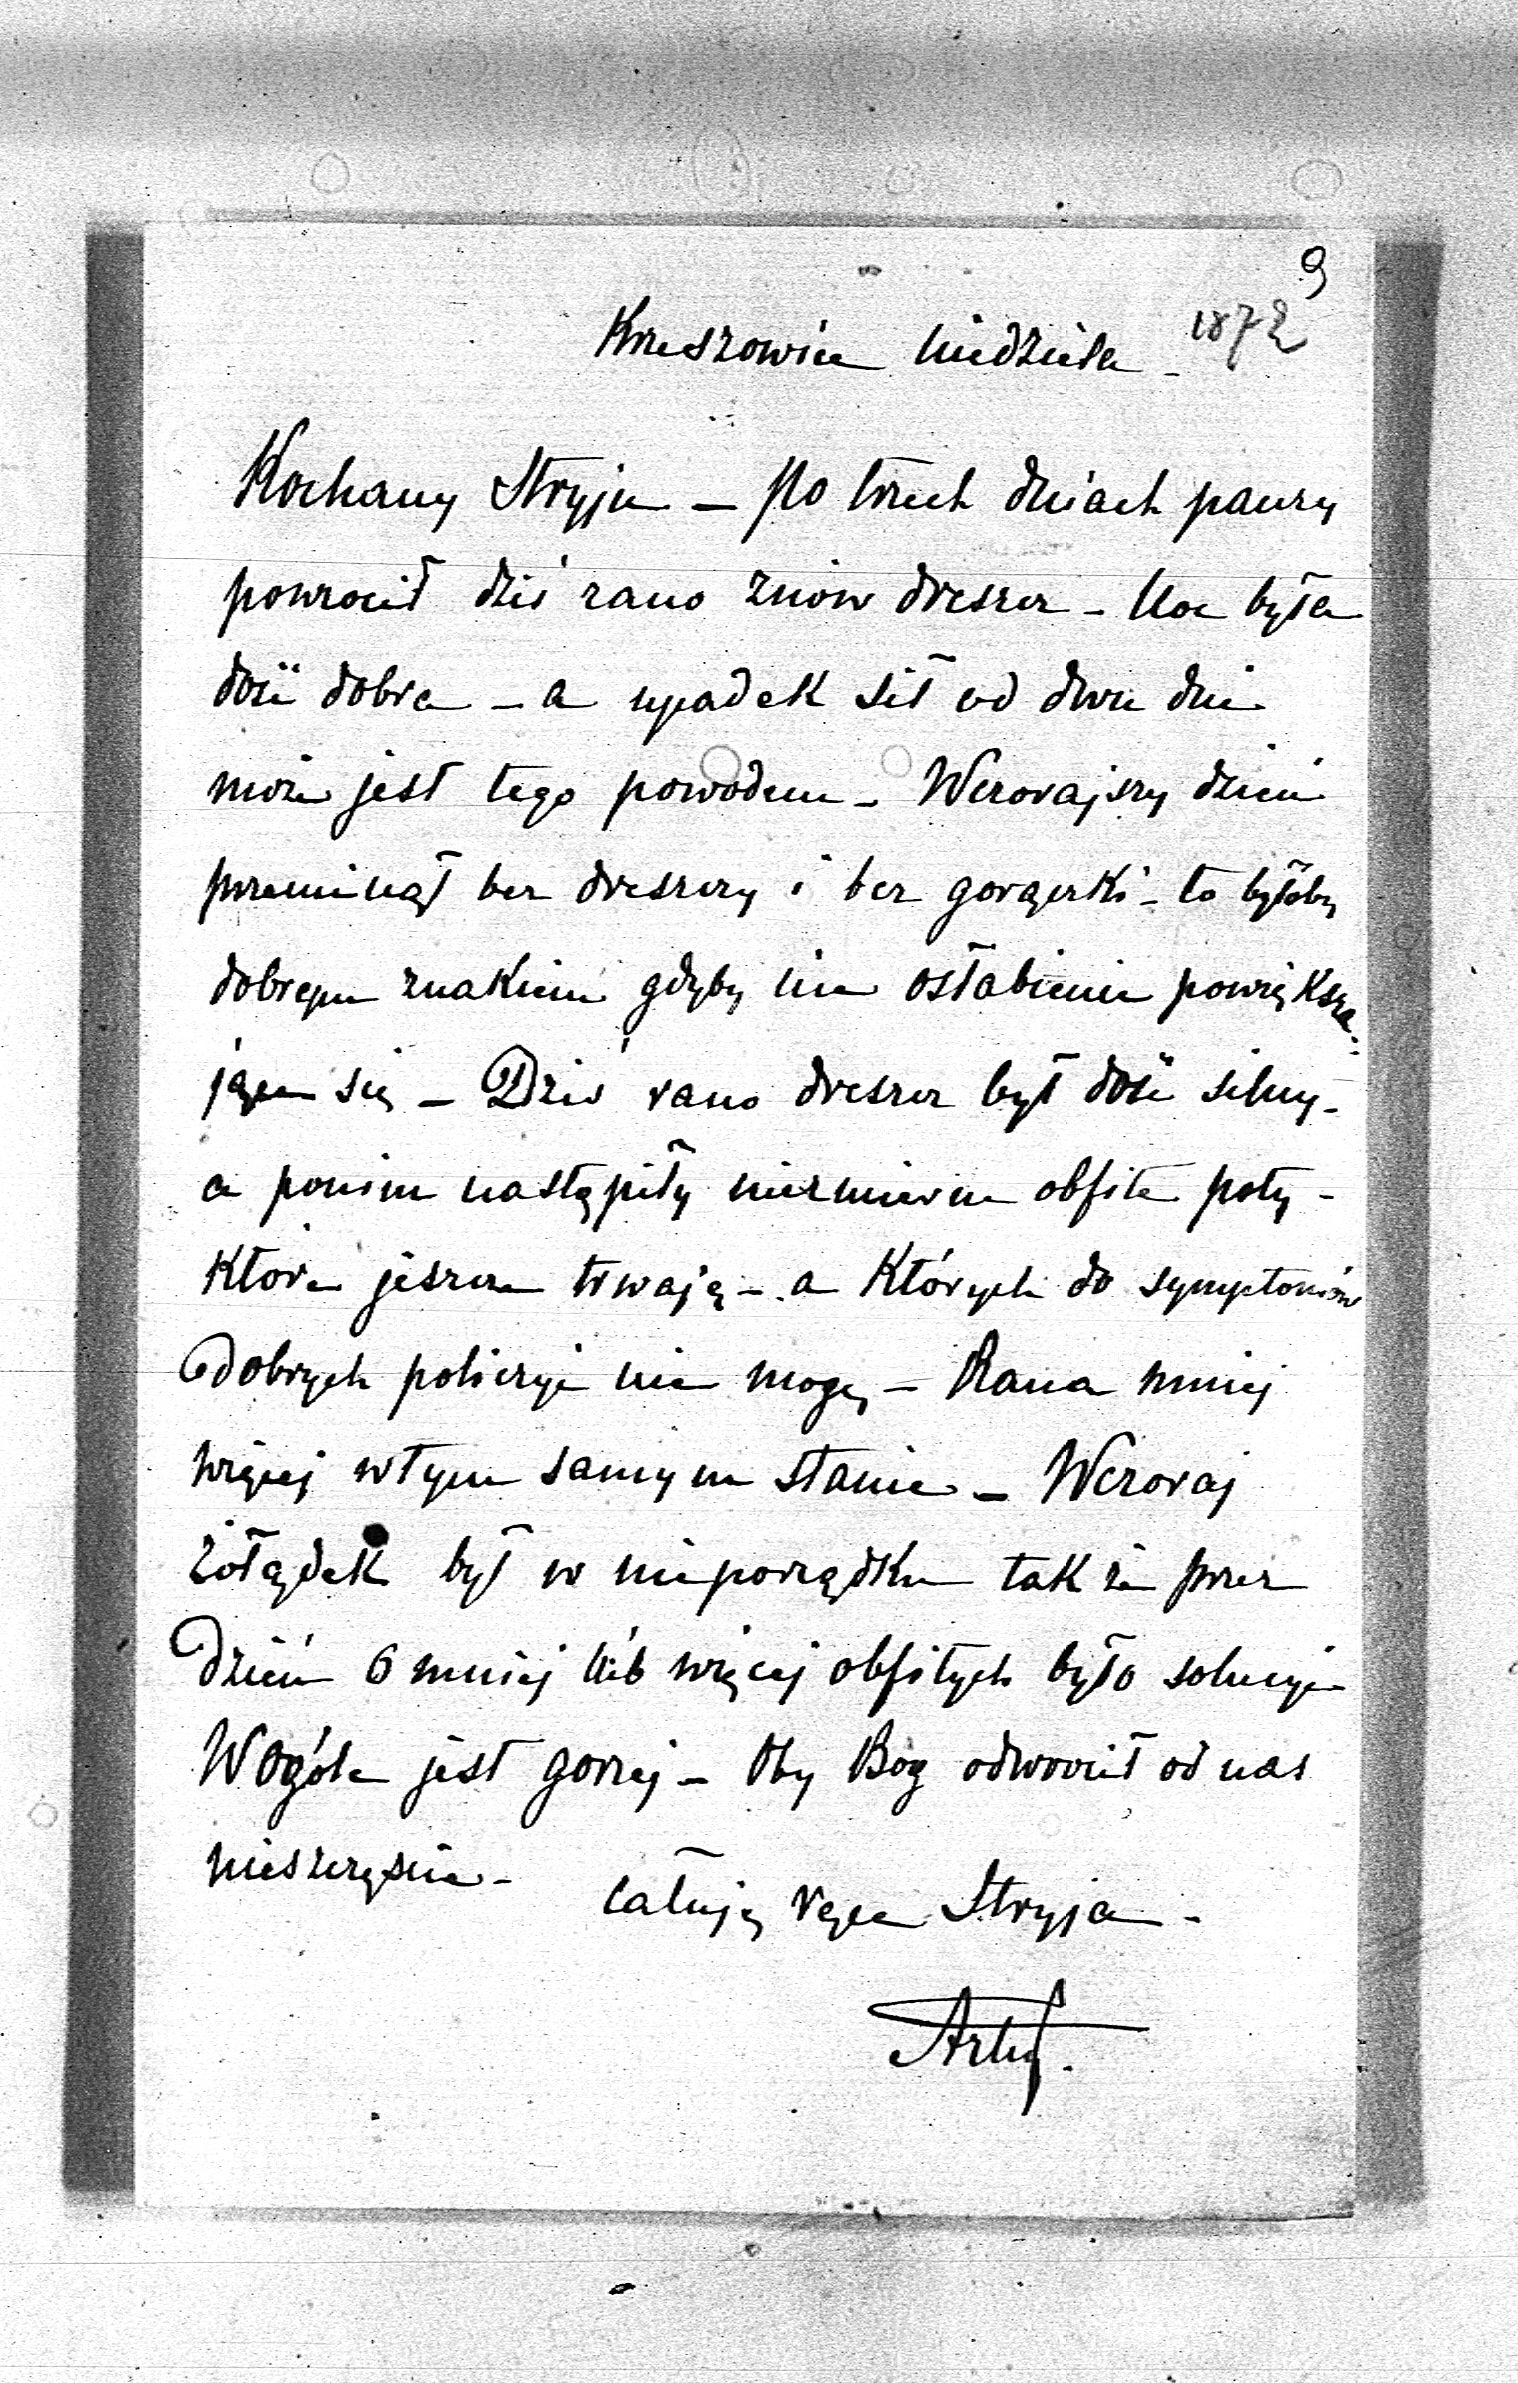 9
Krzeszowice Niedziela - 1872
Kochany Stryju - Po trzech dniach pauzy
powrocił dziś rano znów dreszcz - Noc była
dość dobra - a upadek sił od dwu dni
może jest tego powodem - Wczorajszy dzień
przeminął bez dreszczy i bez gorączki - to byłoby
dobrym znakiem gdyby nie osłabienie powiększa-
jące się - Dziś rano dreszcz był dość silny -
a ponim nastąpiły niezmierne obfite poty -
które jeszcze trwają - a których do symptomów
dobrych policzyć nie mogę - Rana mniej
więcej wtym samym stanie - Wczoraj
żołądek był w nieporządku tak że przez
dzień 6 mniej lub więcej obfitych było solucyi
Wogóle jest gorzej - Oby Bóg odwrócił od nas
nieszczęście -
Całuję ręce Stryja -
Artur.